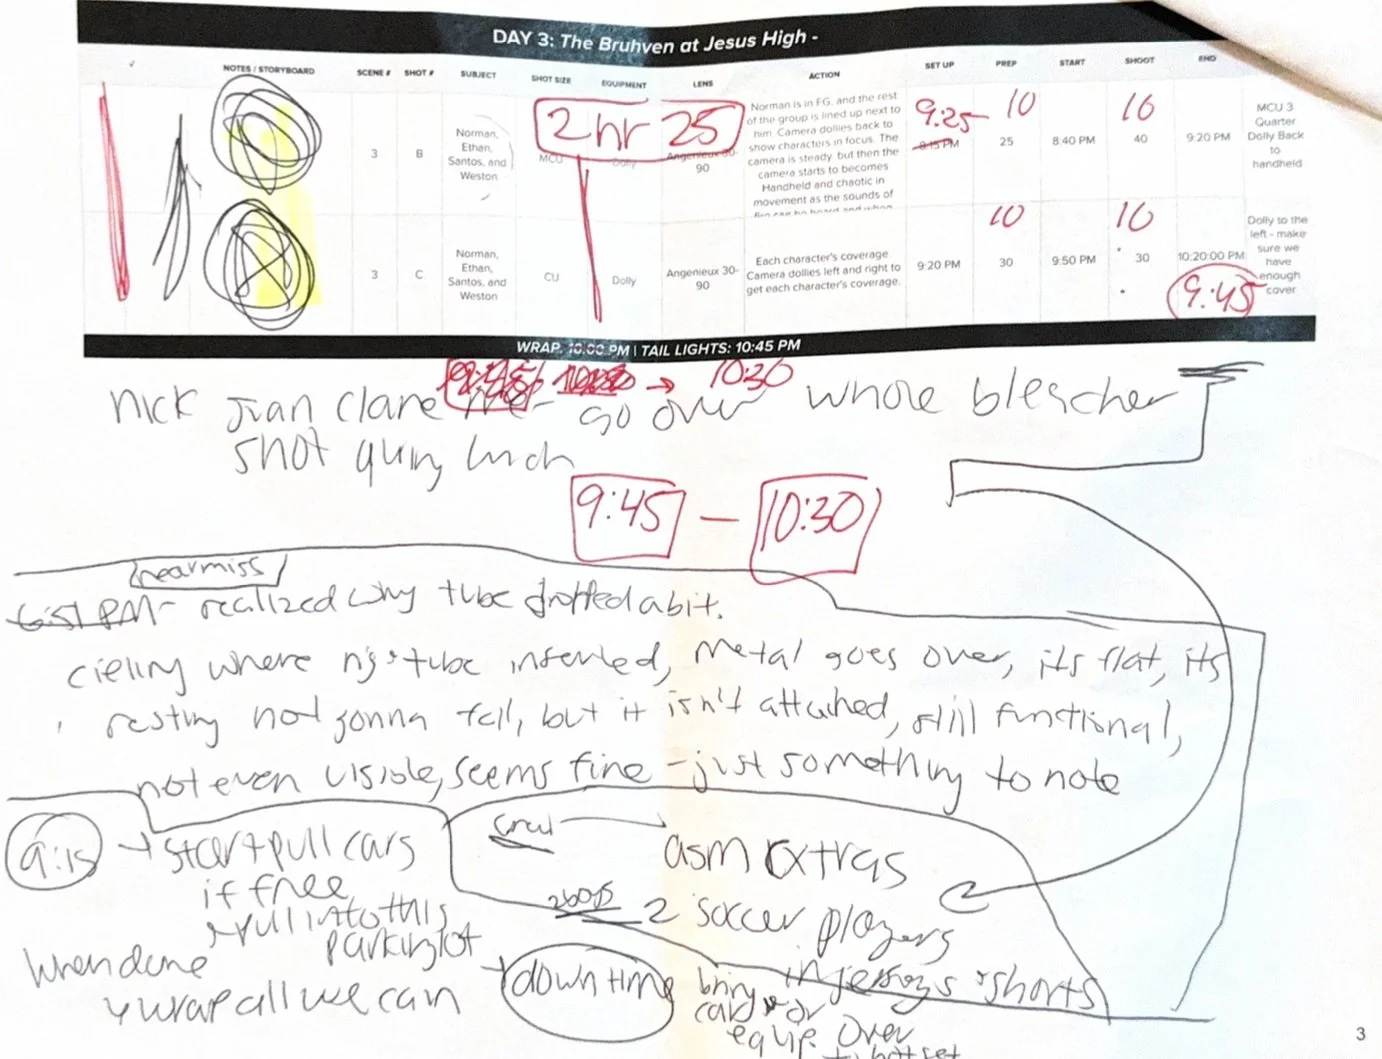 DAY 3: The Bruhven at Jesus High -
NOTES / STORYBOARD SCENE # SHOT # SUBJECT SHOT SIZE EQUIPMENT LENS ACTION SET UP PREP START SHOOT END
3 B Norman, Ethan, Santos, and Weston MCU Dolly Angenieux 30-90 Norman is in FG, and the rest of the group is lined up next to him. Camera dollies back to show characters in focus. The camera is steady, but then the camera starts to becomes Handheld and chaotic in movement as the sounds of 8:15 PM 25 8:40 PM 40 9:20 PM MCU 3 Quarter Dolly Back to handheld
2 hr 25
9:25 10 10
3 C Norman, Ethan, Santos, and Weston CU Dolly Angenieux 30-90 Each character's coverage. Camera dollies left and right to get each character's coverage. 9:20 PM 30 9:50 PM 30 10:20:00 PM Dolly to the left - make sure we have enough cover
10 10
9:45
WRAP: 10:00 PM | TAIL LIGHTS: 10:45 PM
→ 10:30
nick Juan Clare me - go over whole bleacher
shot quring lunch
9:45 — 10:30
nearmiss
6:51 PM - realized why tube dropped a bit.
cieling where rig + tube inserted, metal goes over, its flat, its
resting not gonna fall, but it isn't attached, still functional,
not even visible, seems fine - just something to note
9:15 → start pull cars
if free
+ pull into this
parking lot
when done
+ wrap all we can
crew
asm extras
2 boys 2 soccer players
in jerseys + shorts
→ down time bring
cart + or
equip over
to hot set
3